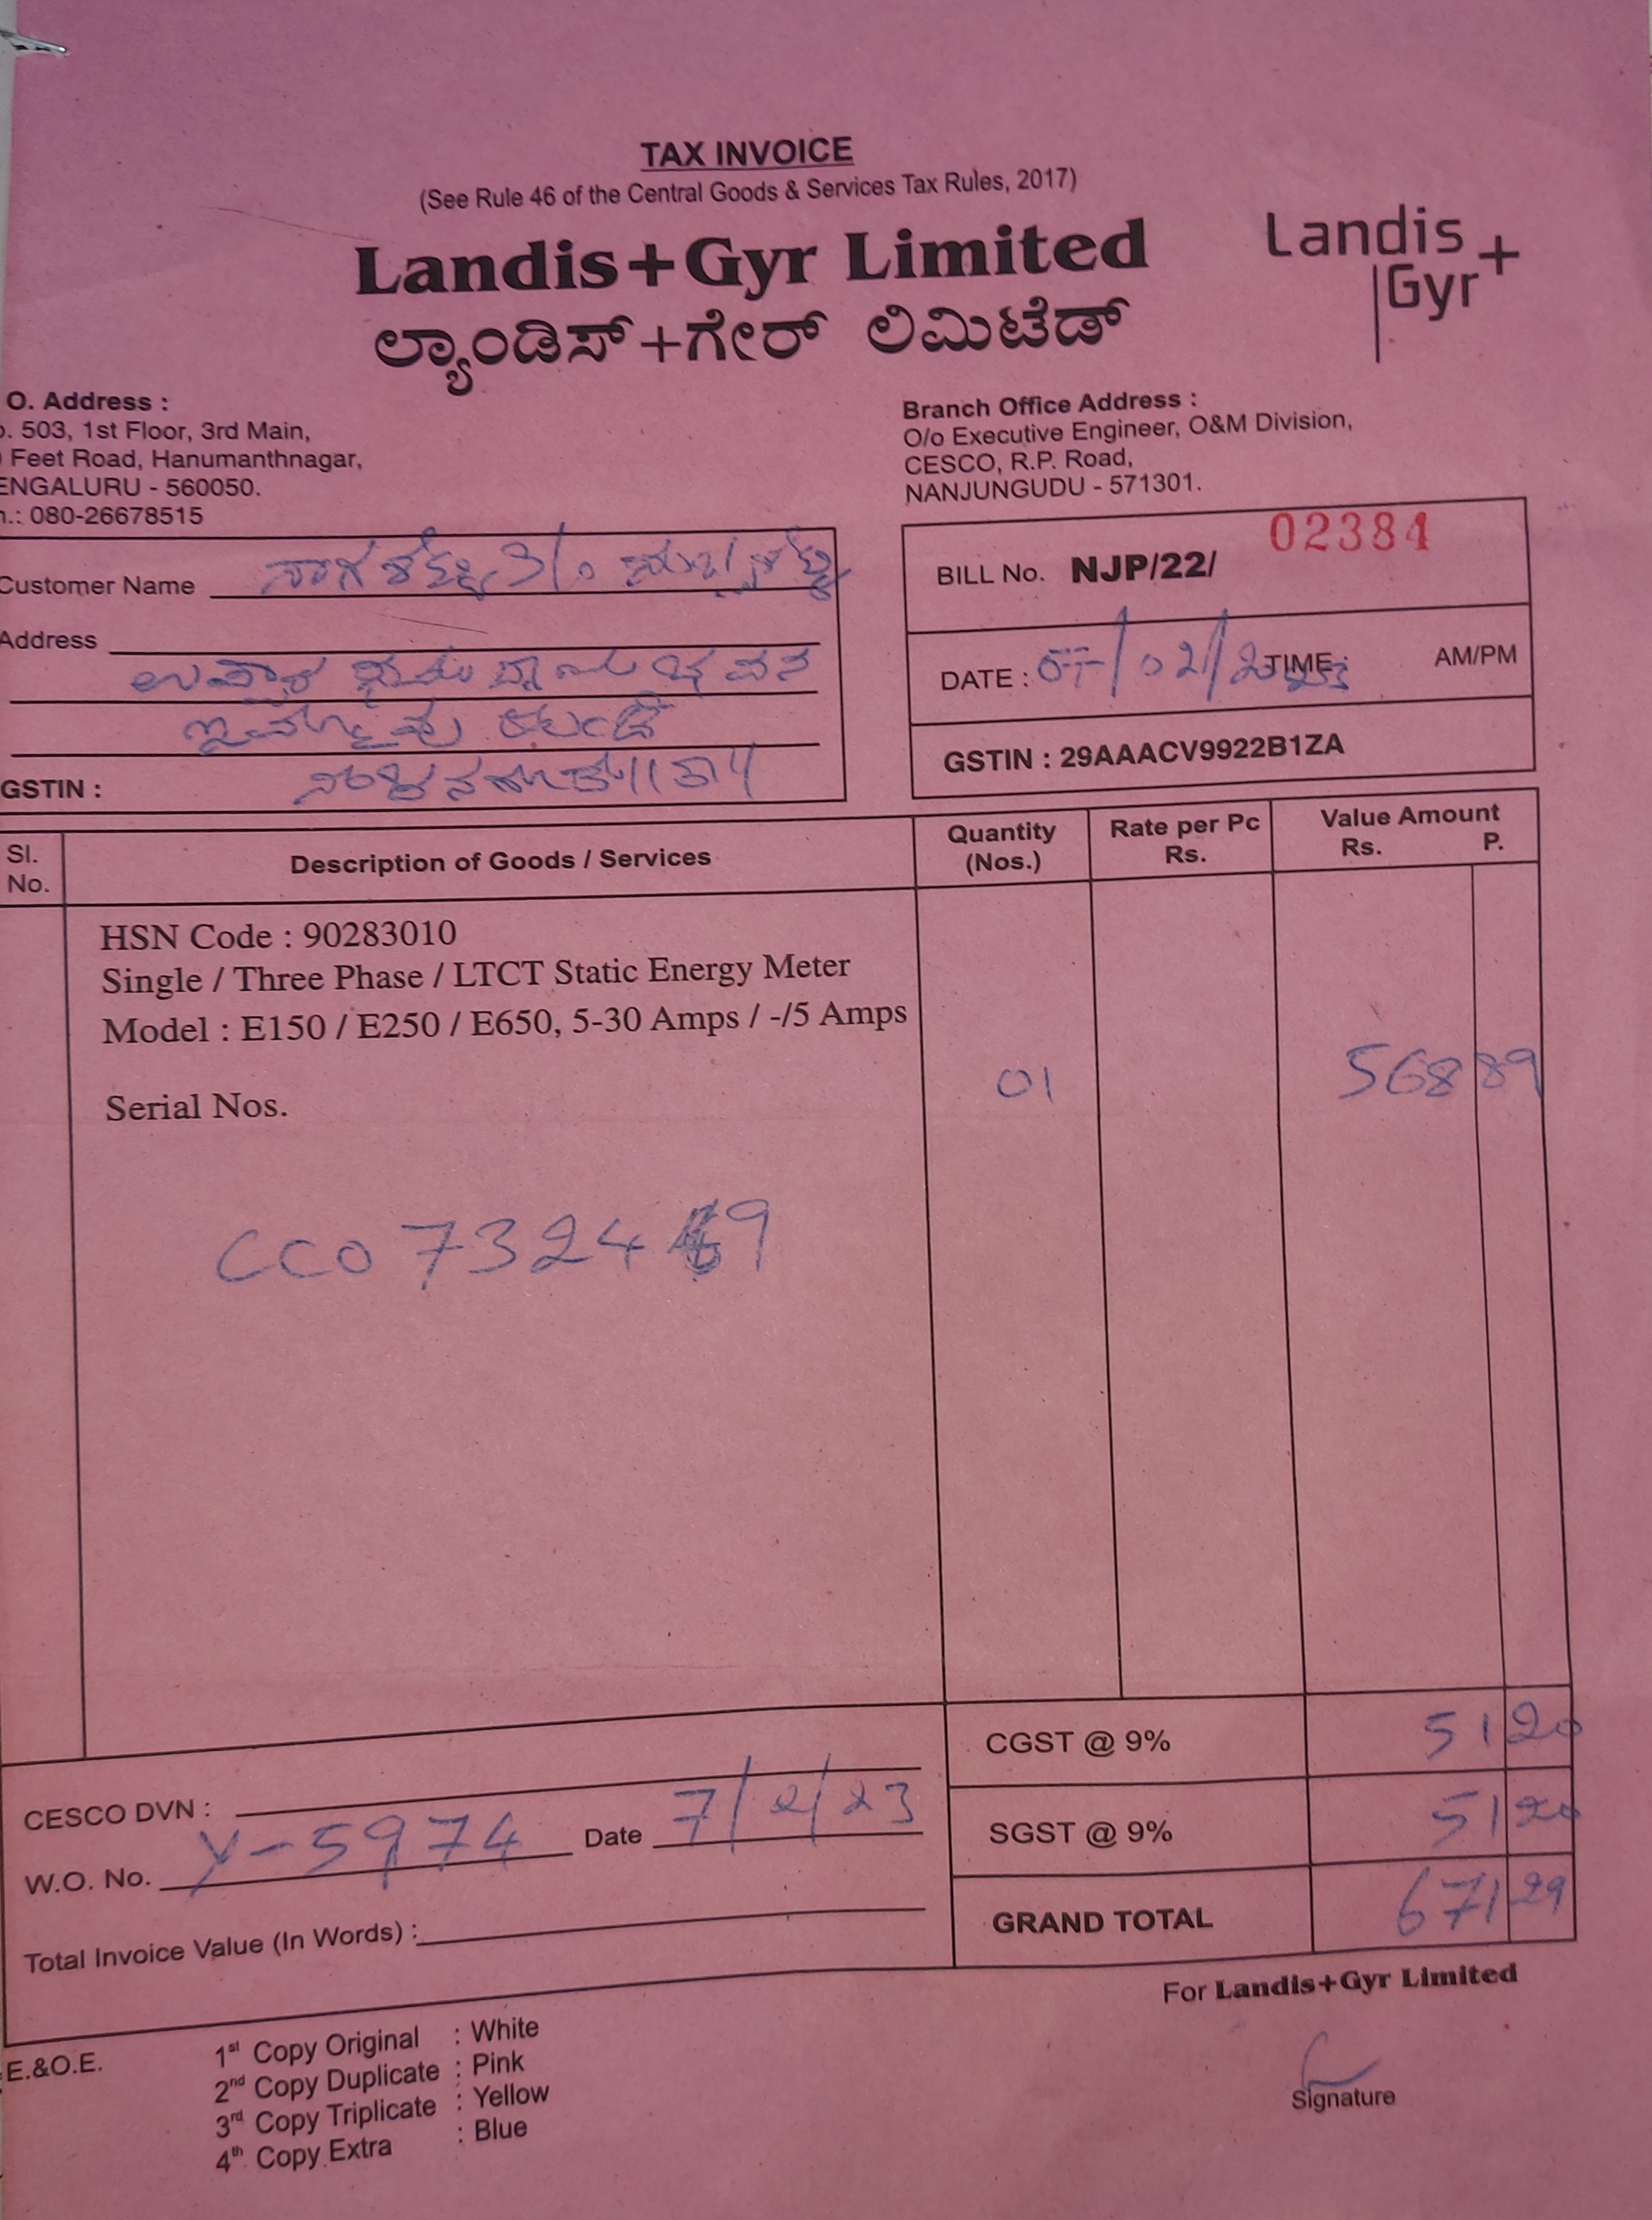 TAX INVOICE
(See Rule 46 of the Central Goods & Services Tax Rules, 2017)
Landis+Gyr Limited
ಲ್ಯಾಂಡಿಸ್+ಗೇರ್ ಲಿಮಿಟೆಡ್
Landis
Gyr+
O. Address :
. 503, 1st Floor, 3rd Main,
Feet Road, Hanumanthnagar,
ENGALURU - 560050.
.: 080-26678515
Branch Office Address :
O/o Executive Engineer, O&M Division,
CESCO, R.P. Road,
NANJUNGUDU - 571301.
Customer Name
Address
GSTIN :
BILL No. NJP/22/ 02384
DATE : 07/02/2023 TIME : AM/PM
GSTIN : 29AAACV9922B1ZA
Sl. No. Description of Goods / Services Quantity (Nos.) Rate per Pc Rs. Value Amount Rs. P.
HSN Code : 90283010
Single / Three Phase / LTCT Static Energy Meter
Model : E150 / E250 / E650, 5-30 Amps / -/5 Amps
Serial Nos. 01 568 89
CGST @ 9% 51 20
SGST @ 9% 51 20
GRAND TOTAL 671 29
CESCO DVN :
W.O. No. Y-5974 Date 7/2/23
Total Invoice Value (In Words) :
For Landis+Gyr Limited
E.&O.E.
1st Copy Original : White
2nd Copy Duplicate : Pink
3rd Copy Triplicate : Yellow
4th Copy Extra : Blue
Signature